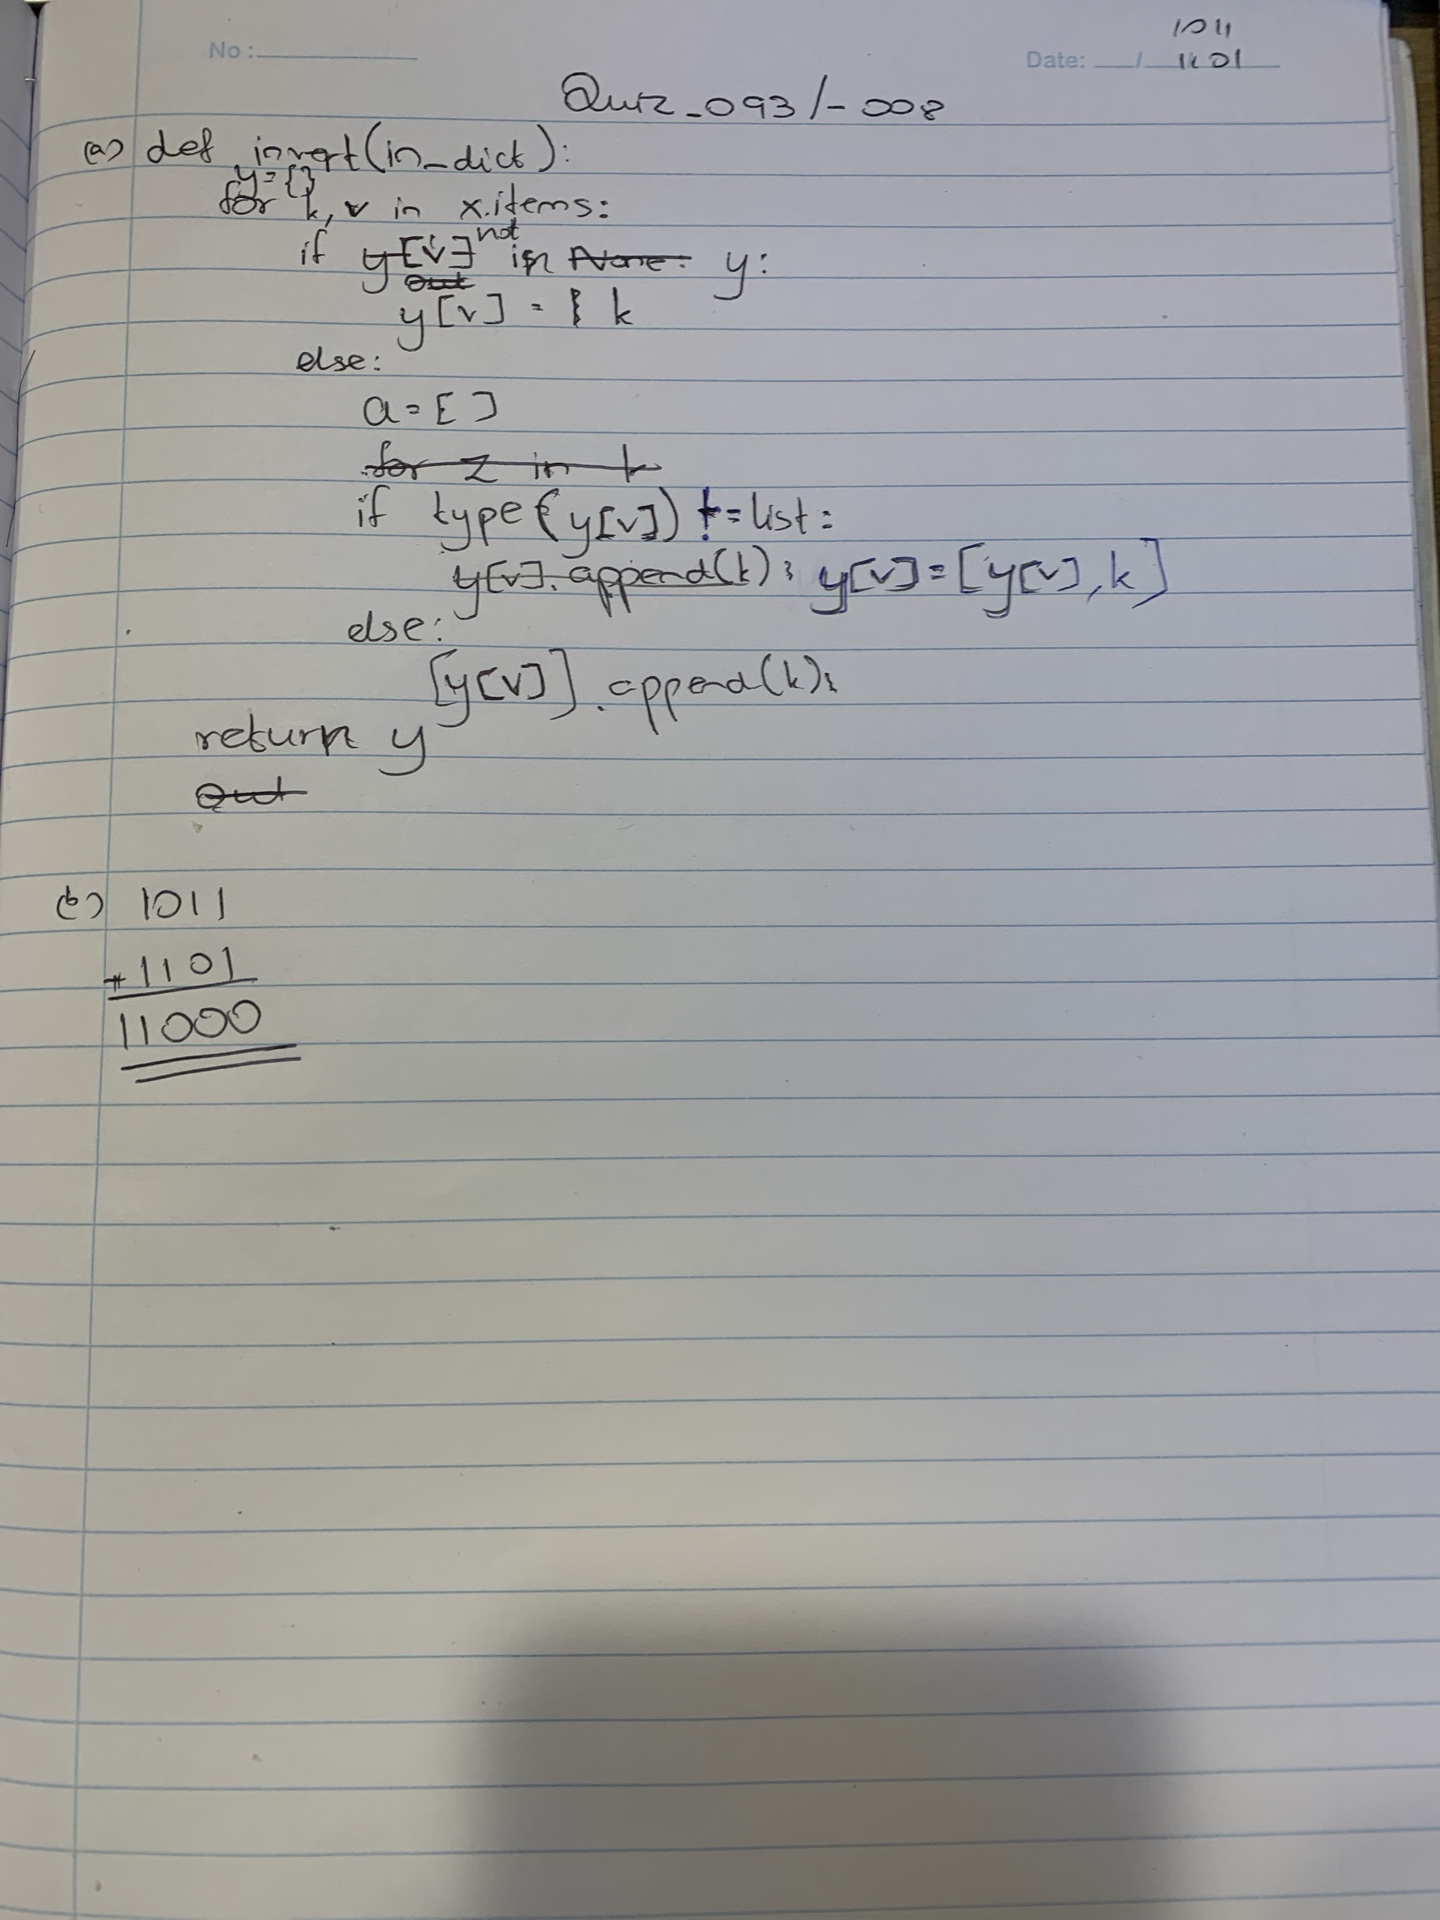 1011
No :
Date: / 1101
Quiz_093/-008
(a) def invert(in_dict):
y={}
for k, v in x.items:
if y[v] not in None: y:
out
y[v] = k
else:
a=[]
for z in k
if type(y[v]) != list:
y[v].append(k); y[v]=[y[v],k]
else:
[y[v]].append(k);
return y
out
(b) 1011
+1101
11000